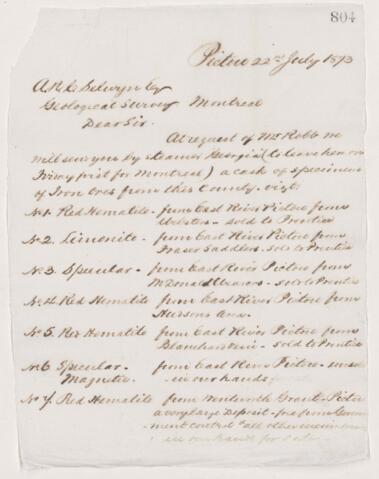 804
Pictou 22nd July 1873
A R C Selwyn Esq
Geological Survey Montreal
Dear Sir.
At request of Mr Robb we
will send you by Steamer Georgia (to leave here on
Friday first for Montreal) a cask of specimens
of Iron ores from this County. vizt
No 1. Red Hematite - from East River Pictou from
Websters - sold to Prentice
No 2. Limonite - from East River Pictou from
Fraser Saddlers. sold to Prentice
No 3. Specular - from East River Pictou from
McDonald sold to Prentice
No. 4 Red Hematite from East River Pictou from
No 5. Red Hematite from East River Pictou from
Blanchard sold to Prentice
No 6 Specular - from East River Pictou - unsold
Magnetic. in our hands
No 7. Red Hematite from Wentworth Grant - Pictou
a very large Deposit - free from Govern
ment control & all other
in our hands for sale